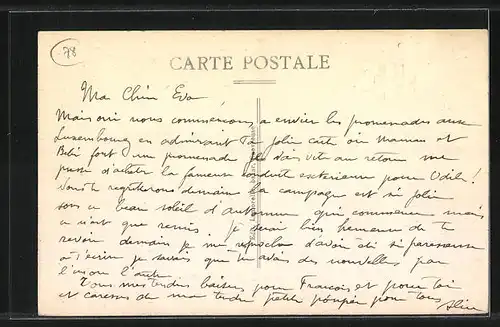 78
CARTE POSTALE
Ma Chérie Eva
Mais oui nous commençons a envier les promenades aux
Luxembourg en admirant ta jolie carte où maman et
Bébé font une promenade je vais vite au retour me
d'acheter la fameuse conduite extérieure pour Odile!
Vous regretterons demain la campagne est si jolie
sous ce beau soleil d'automne qui commence mais
ce n'est que remis je serai bien heureuse de te
revoir demain je me reproche d'avoir été si paresseuse
à t'écrire je savais que tu avais des nouvelles par
l'un ou l'autre
Tous mes tendres baisers pour François et pour toi
et caresses de ma tendre petite poupée pour tous